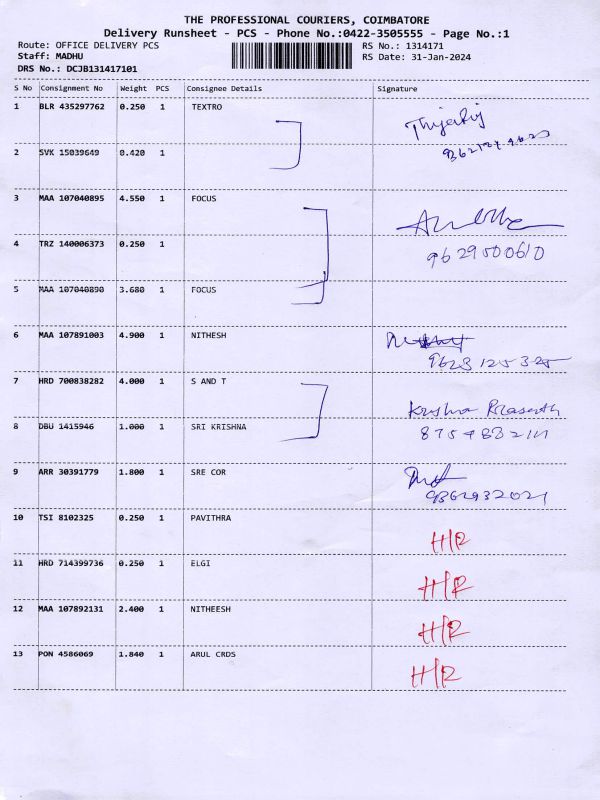 THE PROFESSIONAL COURIERS, COIMBATORE
Delivery Runsheet - PCS - Phone No.:0422-3505555 - Page No.:1
Route: OFFICE DELIVERY PCS RS No.: 1314171
Staff: MADHU RS Date: 31-Jan-2024
DRS No.: DCJB131417101
S No Consignment No Weight PCS Consignee Details Signature
1 BLR 435297762 0.250 1 TEXTRO
2 SVK 15039649 0.420 1
3 MAA 107040895 4.550 1 FOCUS
4 TRZ 140006373 0.250 1 9629500610
5 MAA 107040890 3.680 1 FOCUS
6 MAA 107891003 4.900 1 NITHESH
9623125325
7 HRD 700838282 4.000 1 S AND T Krishna Prasanth
8 DBU 1415946 1.000 1 SRI KRISHNA
9 ARR 30391779 1.800 1 SRE COR
9862932021
10 TSI 8102325 0.250 1 PAVITHRA H/R
11 HRD 714399736 0.250 1 ELGI H/R
12 MAA 107892131 2.400 1 NITHEESH H/R
13 PON 4586069 1.840 1 ARUL CRDS H/R